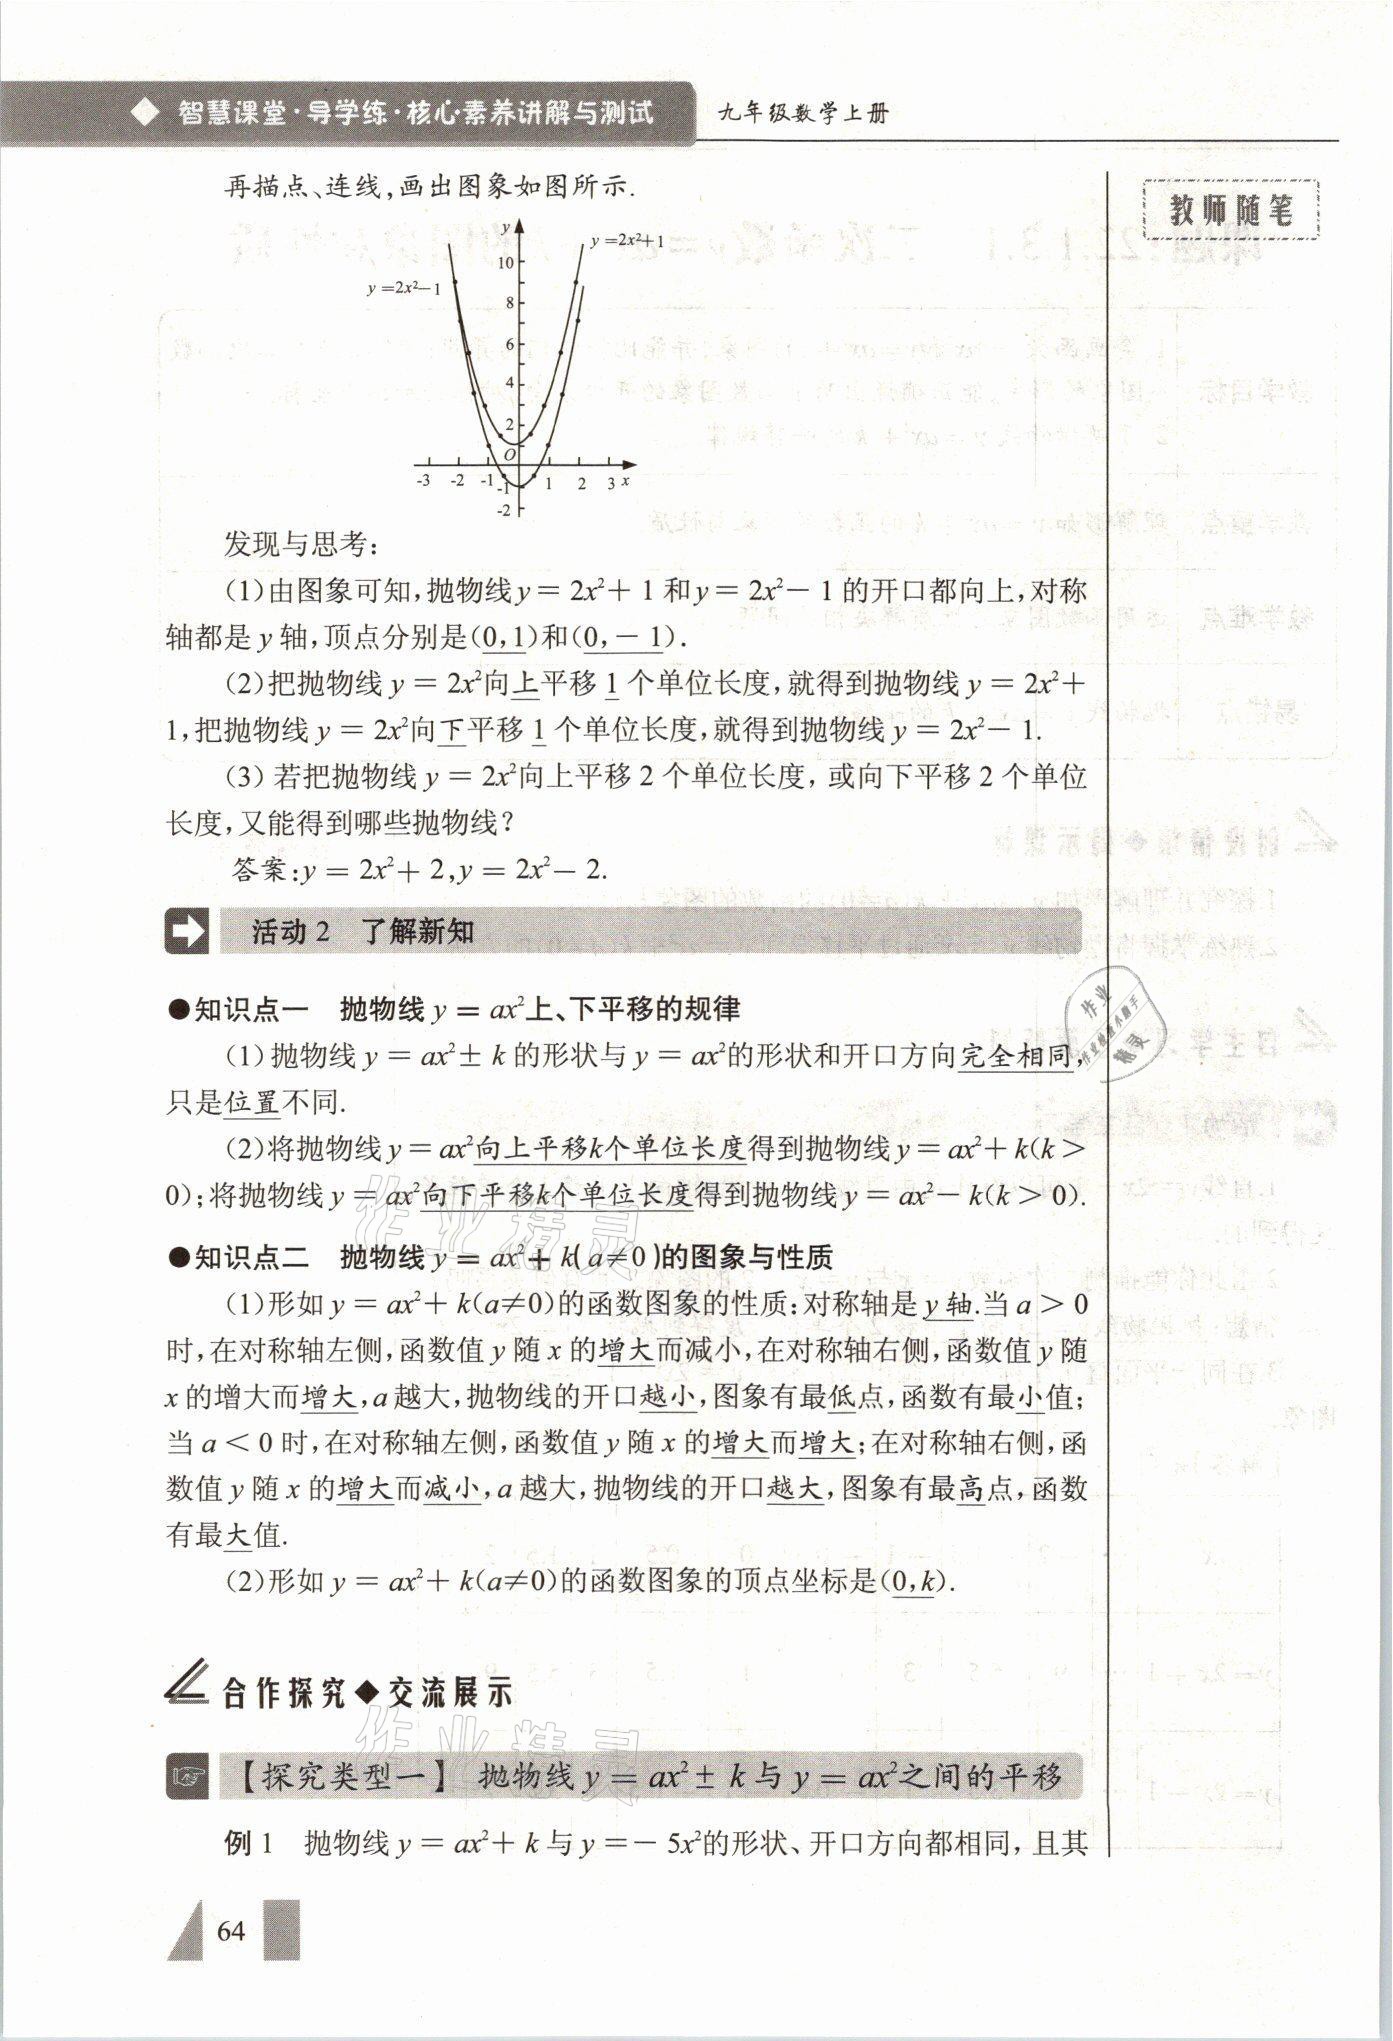 智慧课堂·导学练·核心素养讲解与测试 九年级数学上册
教师随笔
再描点、连线,画出图象如图所示.
y
y=2x²+1
y=2x²-1
10
8
6
4
2
O
-3 -2 -1 1 2 3 x
-1
-2
发现与思考:
(1)由图象可知,抛物线y=2x²+1和y=2x²-1的开口都向上,对称
轴都是y轴,顶点分别是(0,1)和(0,-1).
(2)把抛物线y=2x²向上平移1个单位长度,就得到抛物线y=2x²+
1,把抛物线y=2x²向下平移1个单位长度,就得到抛物线y=2x²-1.
(3)若把抛物线y=2x²向上平移2个单位长度,或向下平移2个单位
长度,又能得到哪些抛物线?
答案:y=2x²+2,y=2x²-2.
活动2 了解新知
●知识点一 抛物线y=ax²上、下平移的规律
(1)抛物线y=ax²±k的形状与y=ax²的形状和开口方向完全相同,
只是位置不同.
(2)将抛物线y=ax²向上平移k个单位长度得到抛物线y=ax²+k(k>
0);将抛物线y=ax²向下平移k个单位长度得到抛物线y=ax²-k(k>0).
●知识点二 抛物线y=ax²+k(a≠0)的图象与性质
(1)形如y=ax²+k(a≠0)的函数图象的性质:对称轴是y轴.当a>0
时,在对称轴左侧,函数值y随x的增大而减小,在对称轴右侧,函数值y随
x的增大而增大,a越大,抛物线的开口越小,图象有最低点,函数有最小值;
当a<0时,在对称轴左侧,函数值y随x的增大而增大;在对称轴右侧,函
数值y随x的增大而减小,a越大,抛物线的开口越大,图象有最高点,函数
有最大值.
(2)形如y=ax²+k(a≠0)的函数图象的顶点坐标是(0,k).
合作探究◆交流展示
【探究类型一】 抛物线y=ax²±k与y=ax²之间的平移
例1 抛物线y=ax²+k与y=-5x²的形状、开口方向都相同,且其
64
作业精灵
作业精灵
作业
精灵